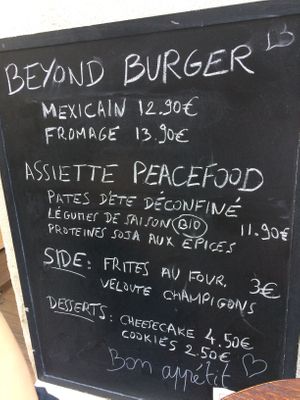 BEYOND BURGER
MEXICAIN 12.90€
FROMAGE 13.90€
ASSIETTE PEACEFOOD
PATES D'ÉTÉ DÉCONFINÉ
LÉGUMES DE SAISON BIO 11.90€
PROTEINES SOJA AUX EPICES
SIDE: FRITES AU FOUR 3€
VELOUTE CHAMPIGONS
DESSERTS: CHEESECAKE 4.50€
COOKIES 2.50€
Bon appétit